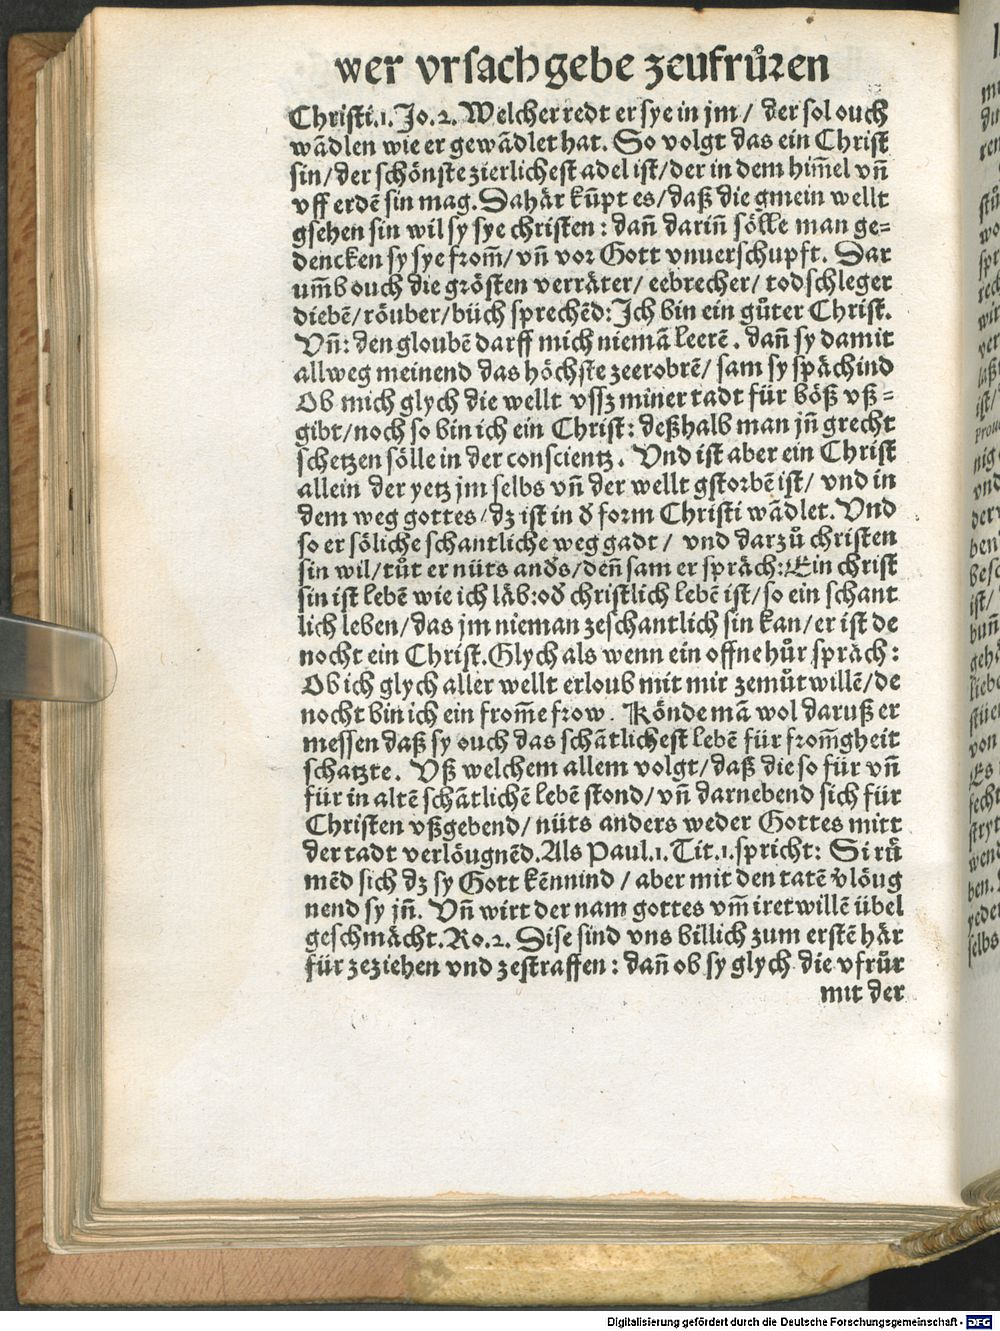 wer vrsach gebe zeufrůren
Christi.1. Jo.2. Welcher redt er sye in jm / der sol ouch
wādlen wie er gewādlet hat. So volgt das ein Christ
sin/ der schönste zierlichest adel ist/ der in dem him̄el vn̄
vff erdē sin mag. Dahär kūpt es/ daß die gmein wellt
gsehen sin wil sy sye christen : dan̄ darin̄ sölle man ge⸗
dencken sy sye from̄/ vn̄ vor Gott vnuerschupft. Dar
um̄b ouch die grösten verräter/ eebrecher/ todschleger
diebē/ röuber/ büch sprechēd: Ich bin ein gůter Christ.
Vn̄: den gloubē darff mich niemā leerē. dan̄ sy damit
allweg meinend das höchste zeerobrē/ sam sy spächind
Ob mich glych die wellt vssz miner tadt für böß vß⸗
gibt/ noch so bin ich ein Christ: deßhalb man jn̄ grecht
schetzen sölle in der conscientz. Vnd ist aber ein Christ
allein der yetz jm selbs vn̄ der wellt gstorbē ist/ vnd in
dem weg gottes/ dz ist in đ form Christi wādlet. Vnd
so er söliche schantliche weg gadt / vnd darzů christen
sin wil/ tůt er nüts anđs/ den̄ sam er spräch: Ein christ
sin ist lebē wie ich läb: ođ christlich lebē ist/ so ein schant
lich leben/ das jm nieman zeschantlich sin kan/ er ist de
nocht ein Christ. Glych als wenn ein offne hůr spräch :
Ob ich glych aller wellt erloub mit mir zemůtwillē/ de
nocht bin ich ein from̄e frow. Könde mā wol daruß er
messen daß sy ouch das schātlichest lebē für from̄gheit
schatzte. Vß welchem allem volgt/ daß die so für vn̄
für in altē schātlichē lebē stond/ vn̄ darnebend sich für
Christen vßgebend/ nüts anders weder Gottes mitt
der tadt verlöugnēd. Als Paul.1. Tit.1. spricht: Si rü
mēd sich dz sy Gott kēnnind / aber mit den tatē v̄löug
nend sy jn̄. Vn̄ wirt der nam gottes vm̄ iret willē übel
geschmächt. Ro.2. Dise sind vns billich zum erstē här
für zeziehen vnd zestraffen : dan̄ ob sy glych die vfrůr
mit der
Digitalisierung gefördert durch die Deutsche Forschungsgemeinschaft - DFG